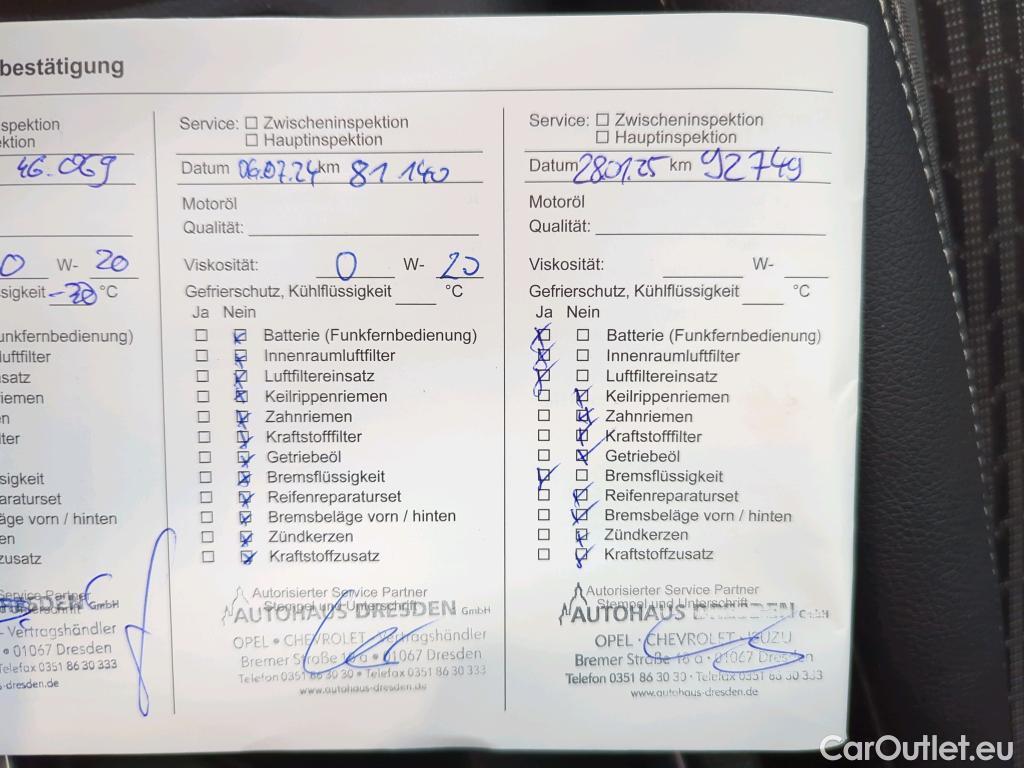 bestätigung
spektion
ktion
46.069
0 W- 20
sigkeit -30 °C
unkfernbedienung)
uftfilter
satz
iemen
n
lter
sigkeit
araturset
äge vorn / hinten
en
zusatz
Service Partner
DRESDEN GmbH
- Vertragshändler
• 01067 Dresden
Telefax 0351 86 30 333
s-dresden.de
Service: Zwischeninspektion
Hauptinspektion
Datum 06.07.24 km 81 140
Motoröl
Qualität:
Viskosität: 0 W- 20
Gefrierschutz, Kühlflüssigkeit °C
Ja Nein
Batterie (Funkfernbedienung)
Innenraumluftfilter
Luftfiltereinsatz
Keilrippenriemen
Zahnriemen
Kraftstofffilter
Getriebeöl
Bremsflüssigkeit
Reifenreparaturset
Bremsbeläge vorn / hinten
Zündkerzen
Kraftstoffzusatz
Autorisierter Service Partner
Stempel und Unterschrift
AUTOHAUS DRESDEN GmbH
OPEL • CHEVROLET - Vertragshändler
Bremer Straße 16 a • 01067 Dresden
Telefon 0351 86 30 30 • Telefax 0351 86 30 333
www.autohaus-dresden.de
Service: Zwischeninspektion
Hauptinspektion
Datum 28.01.25 km 92 749
Motoröl
Qualität:
Viskosität: W-
Gefrierschutz, Kühlflüssigkeit °C
Ja Nein
Batterie (Funkfernbedienung)
Innenraumluftfilter
Luftfiltereinsatz
Keilrippenriemen
Zahnriemen
Kraftstofffilter
Getriebeöl
Bremsflüssigkeit
Reifenreparaturset
Bremsbeläge vorn / hinten
Zündkerzen
Kraftstoffzusatz
Autorisierter Service Partner
Stempel und Unterschrift
AUTOHAUS DRESDEN GmbH
OPEL • CHEVROLET • ISUZU
Bremer Straße 16 a • 01067 Dresden
Telefon 0351 86 30 30 • Telefax 0351 86 30 333
www.autohaus-dresden.de
CarOutlet.eu